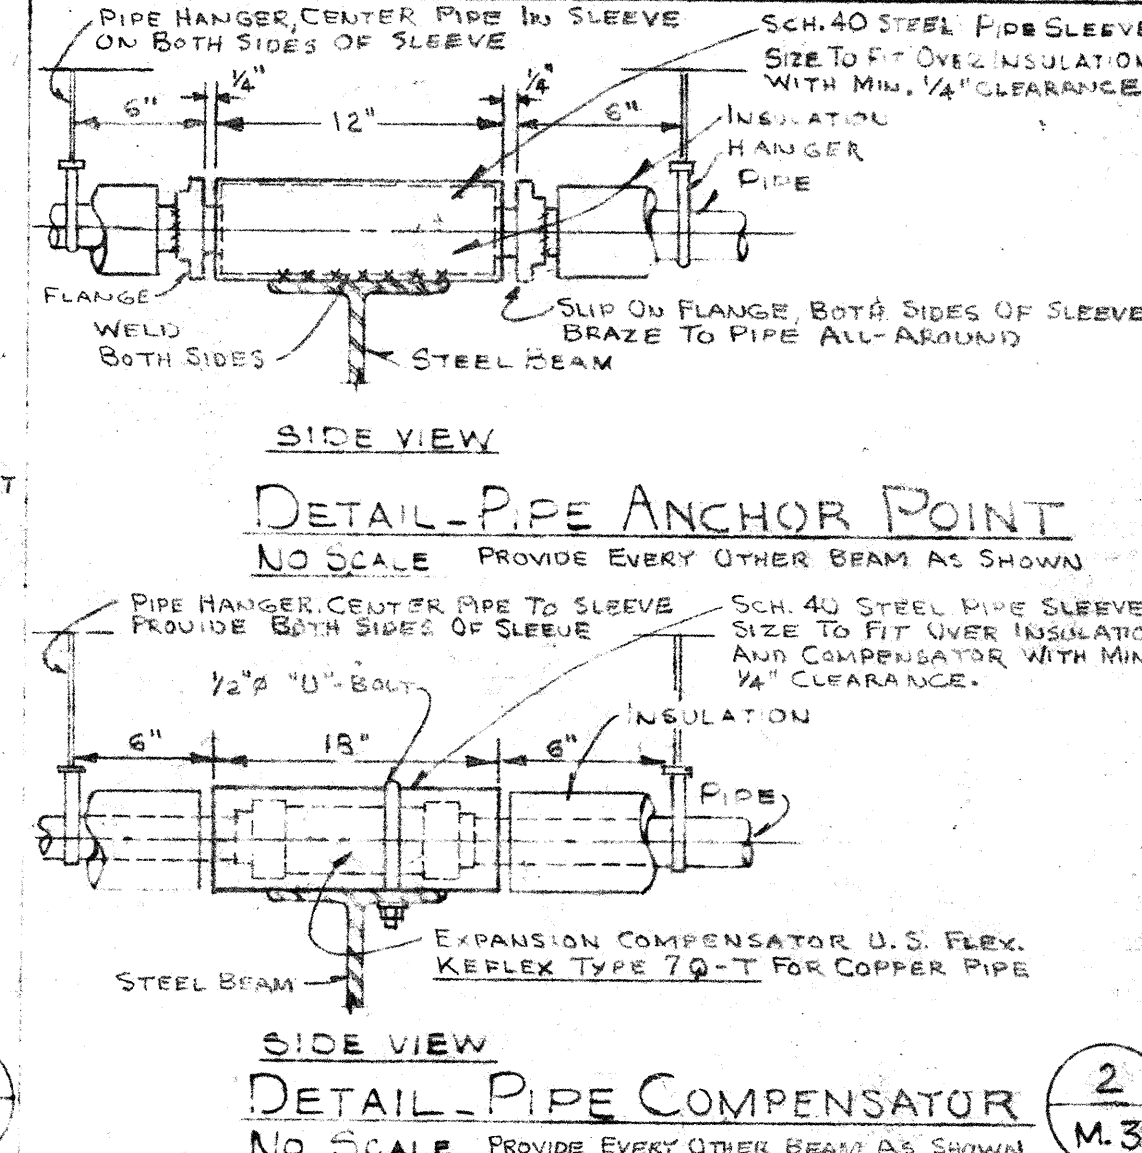 PIPE HANGER, CENTER PIPE IN SLEEVE
ON BOTH SIDES OF SLEEVE
SCH. 40 STEEL PIPE SLEEVE
SIZE TO FIT OVER INSULATION
WITH MIN. 1/4" CLEARANCE
1/4"
1/4"
6"
12"
6"
INSULATION
HANGER
PIPE
FLANGE
WELD
BOTH SIDES
SLIP ON FLANGE, BOTH SIDES OF SLEEVE
BRAZE TO PIPE ALL-AROUND
STEEL BEAM
SIDE VIEW
T
DETAIL-PIPE ANCHOR POINT
NO SCALE PROVIDE EVERY OTHER BEAM AS SHOWN
PIPE HANGER, CENTER PIPE TO SLEEVE
PROVIDE BOTH SIDES OF SLEEVE
SCH. 40 STEEL PIPE SLEEVE
SIZE TO FIT OVER INSULATIO
AND COMPENSATOR WITH MIN
1/4" CLEARANCE.
1/2"ø "U"-BOLT
INSULATION
6"
18"
6"
PIPE
EXPANSION COMPENSATOR U.S. FLEX.
KEFLEX TYPE 7Q-T FOR COPPER PIPE
STEEL BEAM
SIDE VIEW
DETAIL-PIPE COMPENSATOR
2
M.3
NO SCALE PROVIDE EVERY OTHER BEAM AS SHOWN